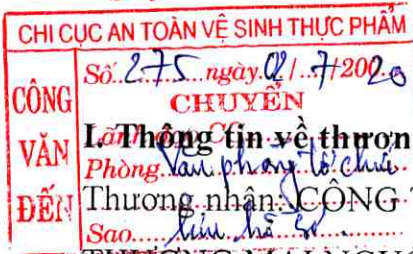 CHI CỤC AN TOÀN VỆ SINH THỰC PHẨM
CÔNG VĂN ĐẾN
Số 275 ngày 02/7/2020
CHUYỂN
I. Thông tin về thươn
Phòng Văn phòng tổ chức
Thương nhân: CÔNG
Sao lưu hồ sơ